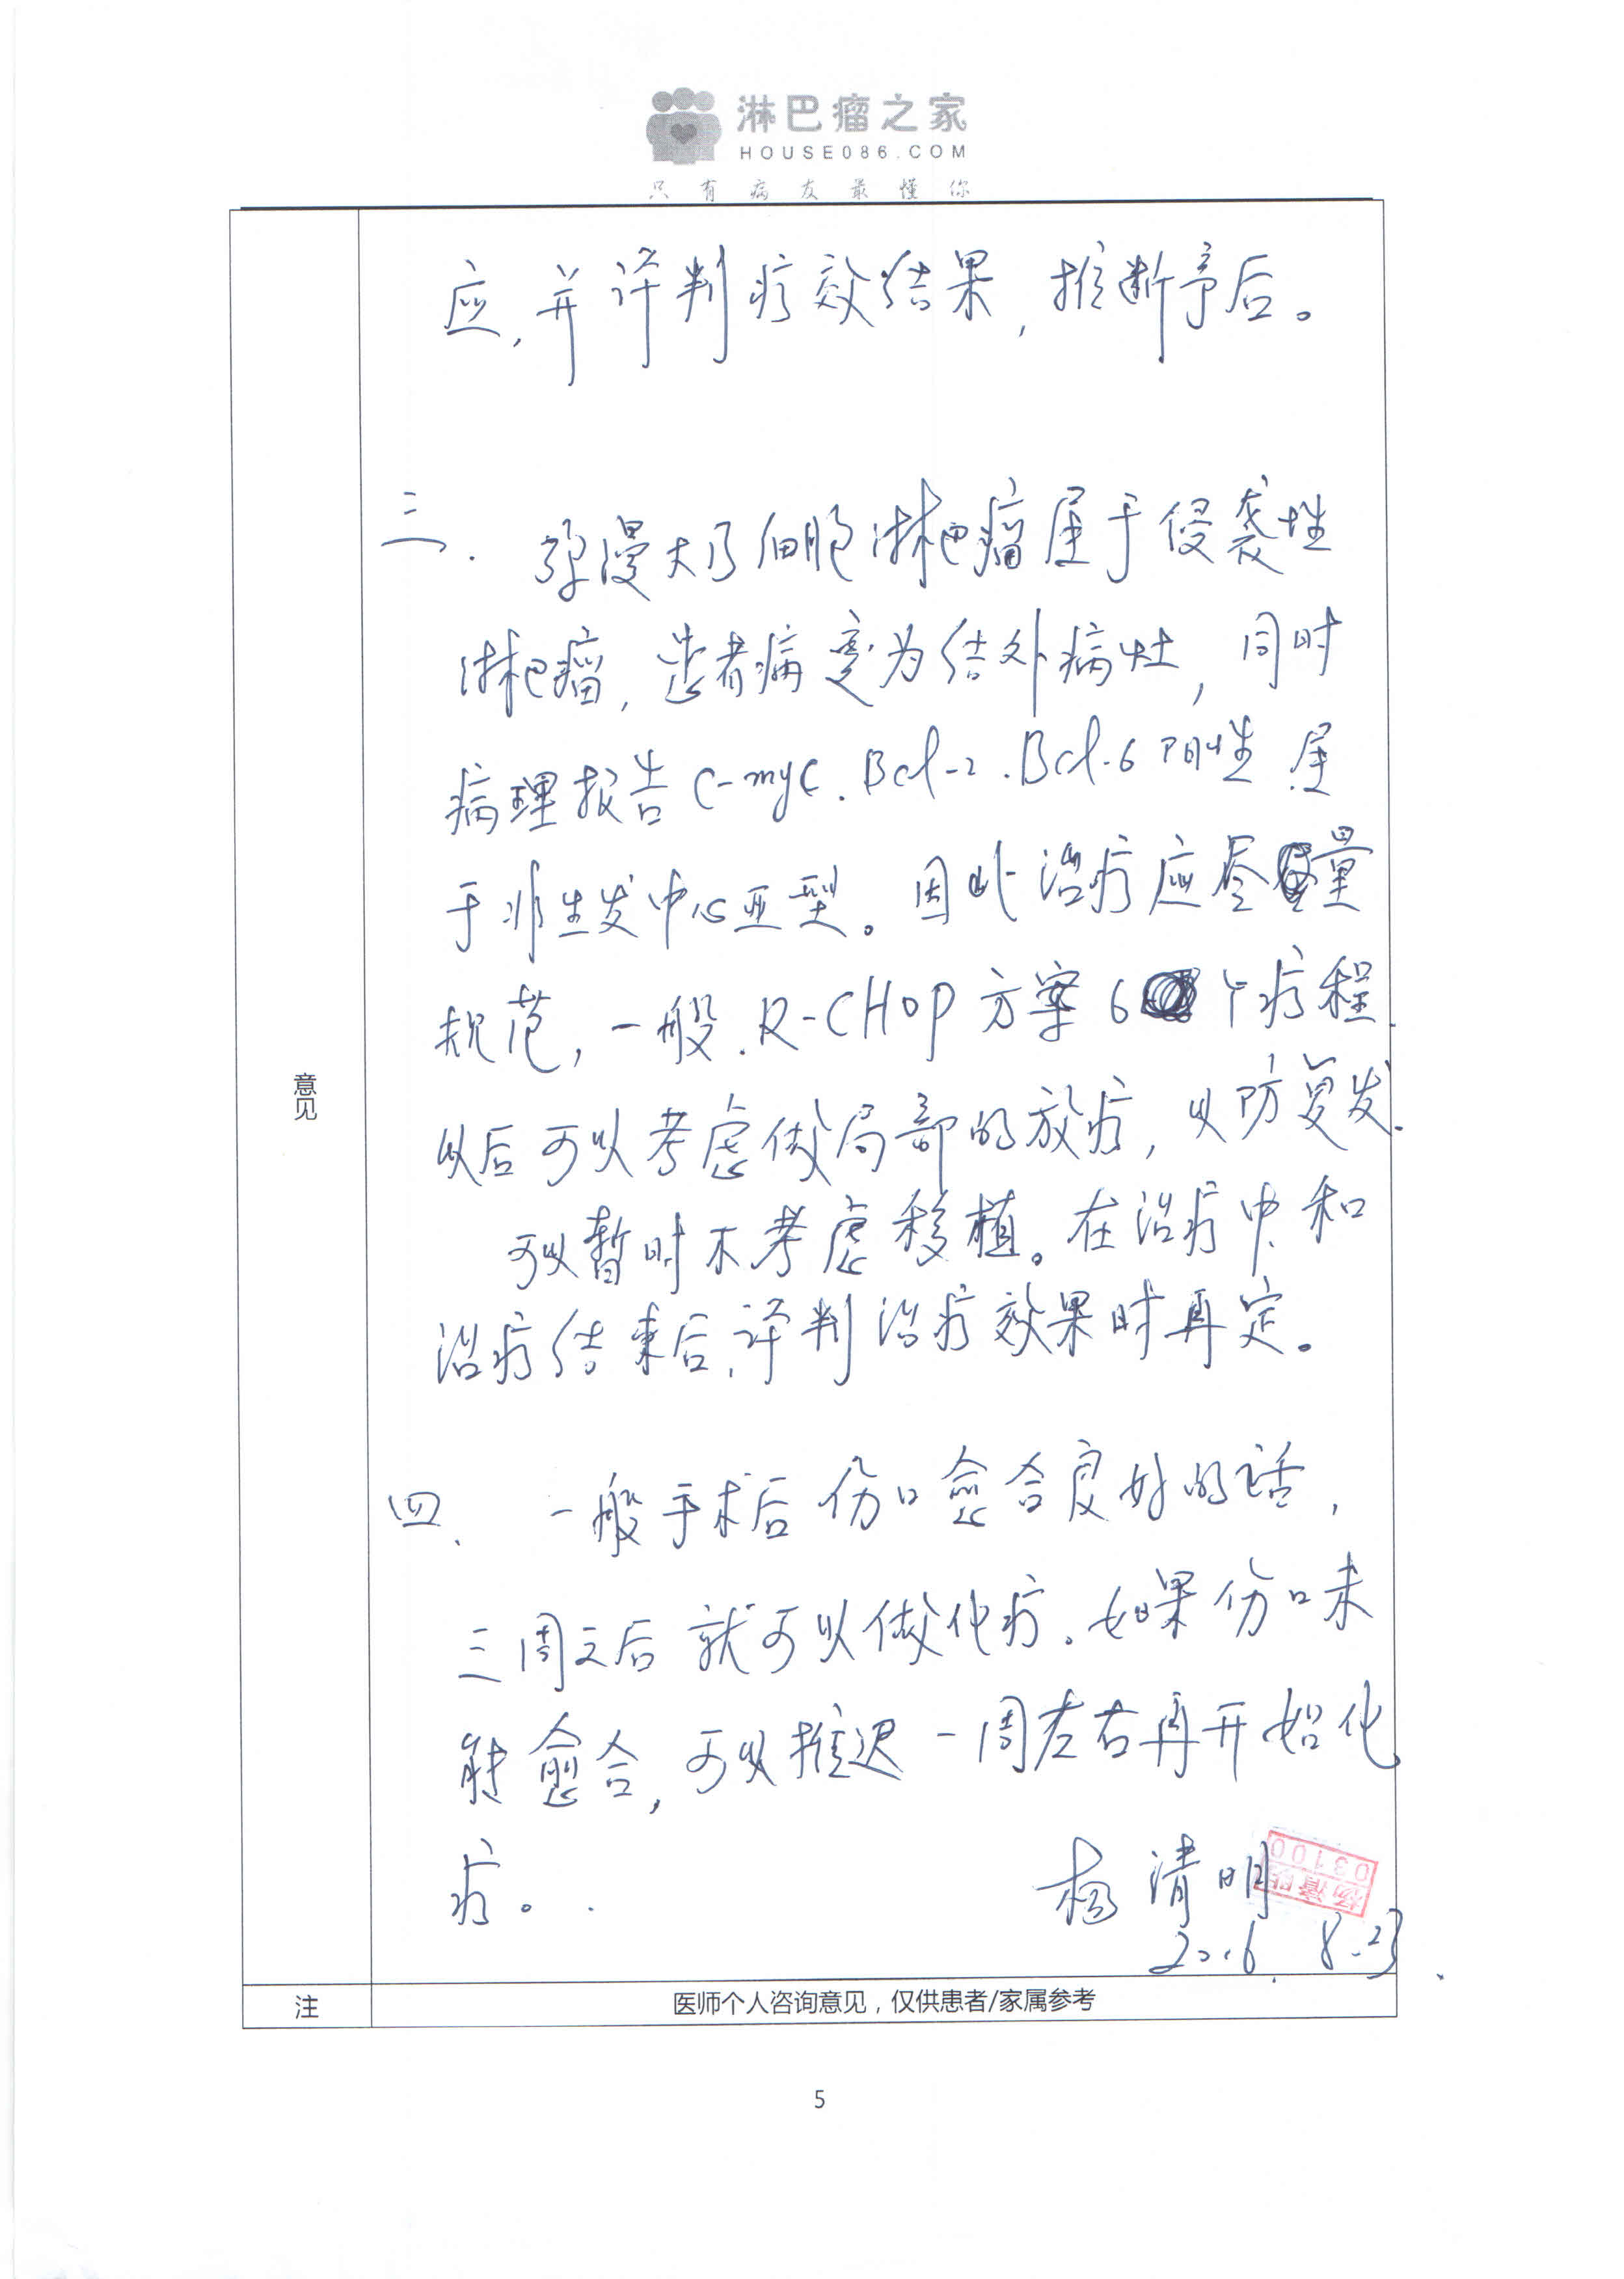 淋巴瘤之家
HOUSE086.COM
只有病友最懂你
应,并评判疗效结果,推断予后。
三. 弥漫大B细胞淋巴瘤属于侵袭性
淋巴瘤,患者病变为结外病灶,同时
病理报告C-myc.Bcl-2.Bcl-6阳性.属
于非生发中心亚型。因此治疗应尽量
规范,一般.R-CHOP方案6个疗程.
以后可以考虑做局部的放疗,以防复发.
可以暂时不考虑移植。在治疗中.和
治疗结束后,评判治疗效果时再定。
四. 一般手术后伤口愈合良好的话,
三周之后就可以做化疗。如果伤口未
能愈合,可以推迟一周左右再开始化
疗。
意见
杨清明
杨清明
03100
2016.8.23
注
医师个人咨询意见,仅供患者/家属参考
5